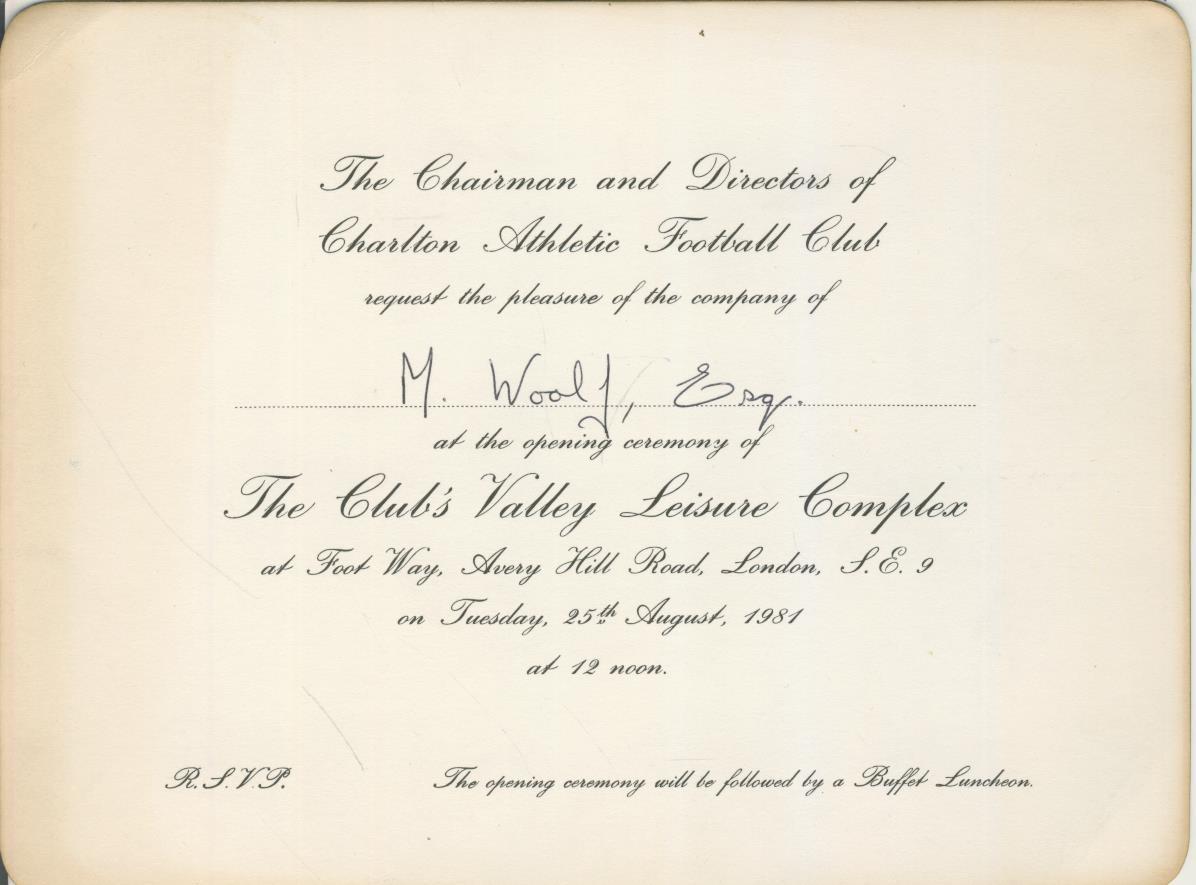 The Chairman and Directors of
Charlton Athletic Football Club
request the pleasure of the company of
M. Woolf, Esq.
at the opening ceremony of
The Club's Valley Leisure Complex
at Foot Way, Avery Hill Road, London, S.E. 9
on Tuesday, 25th August, 1981
at 12 noon.
R.S.V.P. The opening ceremony will be followed by a Buffet Luncheon.